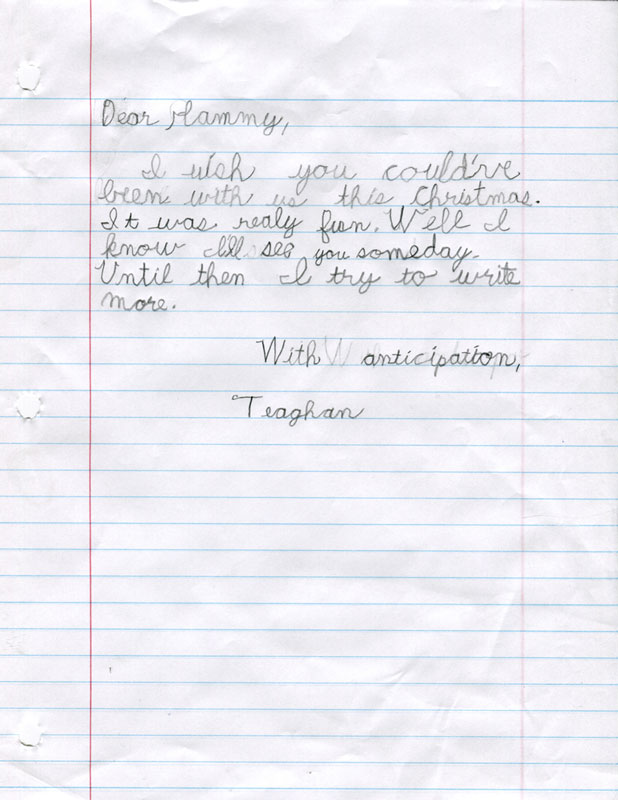 Dear Hammy,
I wish you could've
been with us this Christmas.
It was realy fun. Well I
know I'll see you someday.
Until then I try to write
more.
With anticipation,
Teaghan